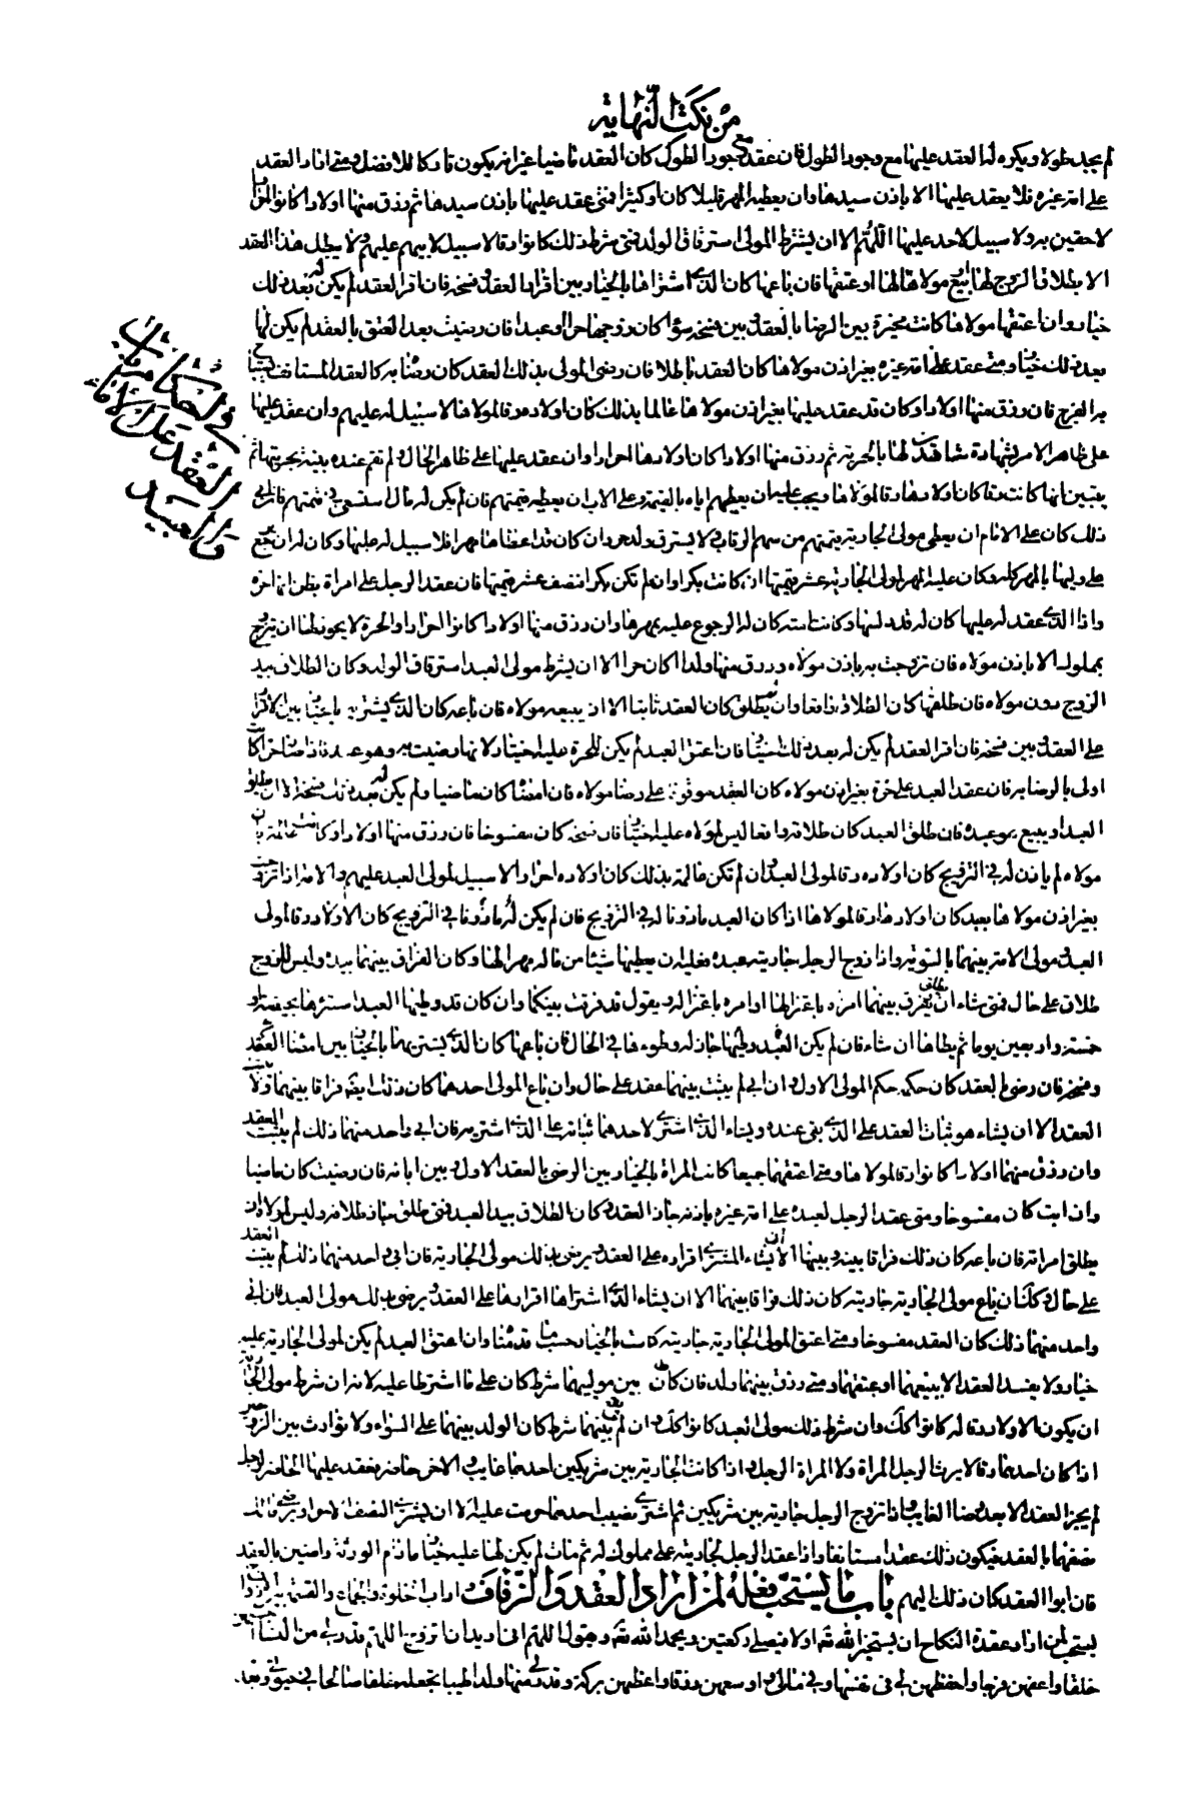 من نكت النهاية
لم يجد طولا ويكره له العقد عليها مع وجود الطول فان عقد مع وجود الطول كان العقد ماضيا غير انه يكون تاركا للافضل ومتى اراد العقد
على امة غيره فلا يعقد عليها الا باذن سيدها وان يعطيه المهر قليلا كان او كثيرا فمتى عقد عليها باذن سيدها ثم رزق منها اولادا كانوا احرارا
لاحقين به ولا سبيل لاحد عليها اللهم الا ان يشترط المولى استرقاق الولد فمتى شرط ذلك كانوا رقا لا سبيل لابيهم عليهم ولا يبطل هذا العقد
الا بطلاق الزوج لها او بيع مولاها لها او عتقها فان باعها كان الذي اشتراها بالخيار بين اقرار العقد وفسخه فان اقر العقد لم يكن له بعد ذلك
خيار وان اعتقها مولاها كانت مخيرة بين الرضا بالعقد وبين فسخه سواء كان زوجها حرا او عبدا فان رضيت بعد العتق بالعقد لم يكن لها
بعد ذلك خيار ومتى عقد على امة غيره بغير اذن مولاها كان العقد باطلا فان رضى المولى بذلك العقد كان رضاه به كالعقد المستانف يستباح
به الفرج فان رزق منها اولادا وكان قد عقد عليها بغير اذن مولاها عالما بذلك كان اولاده رقا لمولاها لا سبيل له عليهم وان عقد عليها
على ظاهر الامر بشهادة شاهدين لها بالحرية ثم رزق منها اولادا كان اولادها احرارا وان عقد عليها على ظاهر الحال ولم تقم عنده بينة بحريتها ثم
يتبين انها كانت رقا كان اولادها رقا لمولاها ويجب عليه ان يعطيهم اياه بالقيمة وعلى الاب ان يعطيه قيمتهم فان لم يكن له مال استسعى في قيمتهم فان ابى
ذلك كان على الامام ان يعطى مولى الجارية قيمتهم من سهم الرقاب ولا يسترق ولد حر وان كان قد اعطاها مهرا فلا سبيل له عليها وكان له ان يرجع
على وليها بالمهر كله وكان عليه المهر لمولى الجارية عشر قيمتها ان كانت بكرا وان لم تكن بكرا نصف عشر قيمتها فان عقد الرجل على امراة يظن انها حرة
واذا الذي عقد له عليها كان له قد دلسها وكانت امته كان له الرجوع عليه بمهرها وان رزق منها اولادا كانوا احرارا والحرة لا يجوز لها ان تتزوج
بمملوك الا باذن مولاه فان تزوجت به باذن مولاه ورزق منها ولدا كان حرا الا ان يشرط مولى العبد استرقاق الولد وكان الطلاق بيد
الزوج دون مولاه فان طلقها كان الطلاق واقعا وان لم يطلق كان العقد ثابتا الا ان يبيعه مولاه فان باعه كان الذي يشتريه بالخيار بين الاقرار
على العقد وبين فسخه فان اقر العقد لم يكن له بعد ذلك خيار فان اعتق العبد لم يكن للحرة عليه اختيار لانها رضيت به وهو عبد فاذا صار حرا كانت
اولى بالرضا به فان عقد العبد على حرة بغير اذن مولاه كان العقد موقوفا على رضا مولاه فان امضاه كان ماضيا ولم يكن له بعد ذلك فسخه الا ان يطلق
العبد او يبيع هو عبده فان طلق العبد كان طلاقه واقعا ليس لمولاه عليه اختيار فان فسخه كان مفسوخا فان رزق منها اولادا وكانت عالمة بان
مولاه لم ياذن له في التزويج كان اولاده رقا لمولى العبد وان لم تكن عالمة بذلك كان اولاده احرارا لا سبيل لمولى العبد عليهم والامة اذا تزوجت
بغير اذن مولاها بعبد كان اولادها رقا لمولاها اذا كان العبد ماذونا له في التزويج فان لم يكن له ماذونا في التزويج كان الاولاد رقا لمولى
العبد ومولى الامة بينهما بالسوية واذا زوج الرجل جاريته عبده فعليه ان يعطيها شيئا من ماله مهرا لها وكان الفراق بينهما بيده وليس للزوج
طلاق على حال فمتى شاء المولى ان يفرق بينهما امره باعتزالها او امرها باعتزاله ويقول قد فرقت بينكما وان كان قد وطئها العبد استبرءها بحيضة او
خمسة واربعين يوما ثم يطاها ان شاء فان لم يكن العبد وطئها جاز له وطؤها في الحال فان باعها كان الذي يشتريهما بالخيار بين امضاء العقد
وفسخه فان رضى بالعقد كان حكمه حكم المولى الاول وان ابى لم يثبت بينهما عقد على حال وان باع المولى احدهما كان ذلك ايضا فراقا بينهما ولا يثبت
العقد الا ان يشاء هو ثبات العقد على الذي بقى عنده ويشاء الذي اشترى لاحدهما ثباته على الذي اشتريه فان ابى واحد منهما ذلك لم يثبت العقد
وان رزق منهما اولادا كانوا رقا لمولاها ومتى اعتقهما جميعا كانت المراة بالخيار بين الرضى بالعقد الاول وبين ابائه فان رضيت كان ماضيا
وان ابت كان مفسوخا ومتى عقد الرجل لعبده على امة غيره باذنه جاز العقد وكان الطلاق بيد العبد فمتى طلق جاز طلاقه وليس لمولاه ان
يطلق امراته فان باعه كان ذلك فراقا بينه وبينها الا ان يشاء المشتري اقراره على العقد ويرضى بذلك مولى الجارية فان ابى واحد منهما ذلك لم يثبت العقد
على حال وكذلك ان باع مولى الجارية جاريته كان ذلك فراقا بينهما الا ان يشاء الذي اشتراها اقرارها على العقد ويرضى بذلك مولى العبد فان ابى
واحد منهما ذلك كان العقد مفسوخا ومتى اعتق المولى الجارية جاريته كانت بالخيار حسب ما قدمناه وان اعتق العبد لم يكن لمولى الجارية عليه
خيار ولا يفسد العقد الا ببيعهما او عتقهما ومتى رزق بينهما ولد فان كان بين موليهما شرط كان على ما اشترطا عليه لانه ان شرط مولى الجارية
ان يكون الاولاد رقا له كانوا كذلك وان شرط ذلك مولى العبد كانوا كذلك وان لم يكن بينهما شرط كان الولد بينهما على السواء ولا توارث بين الزوجين
اذا كان احدهما رقا لا يرث الرجل المراة ولا المراة الرجل واذا كانت الجارية بين شريكين احدهما غايب والاخر حاضر فعقد عليها الحاضر لرجل
لم يجز العقد الا بعد رضا الغايب واذا تزوج الرجل جارية بين شريكين ثم اشترى نصيب احدهما حرمت عليه الا ان يشتري النصف الاخر او يرضى مالك
نصفها بالعقد فيكون ذلك عقدا مستانفا واذا عقد الرجل لجاريته على مملوك له ثم مات لم يكن لها عليه خيار ما دام الورثة راضين بالعقد
فان ابوا العقد كان ذلك اليهم باب ما يستحب فعله لمن اراد العقد والزفاف واداب الخلوة والجماع والقسمة بين الازواج
يستحب لمن اراد عقدة النكاح ان يستخير الله تعالى اولا فيصلي ركعتين ويحمد الله تعالى ويقول اللهم انى اريد ان اتزوج اللهم قدر لي من النساء احسنهن
خلقا واعفهن فرجا واحفظهن لي في نفسها وفي مالي واوسعهن رزقا واعظمهن بركة وقدر لي منها ولدا طيبا تجعله خلفا صالحا في حيوتي وبعد
في احكام
العقد على الاماء
والعبيد